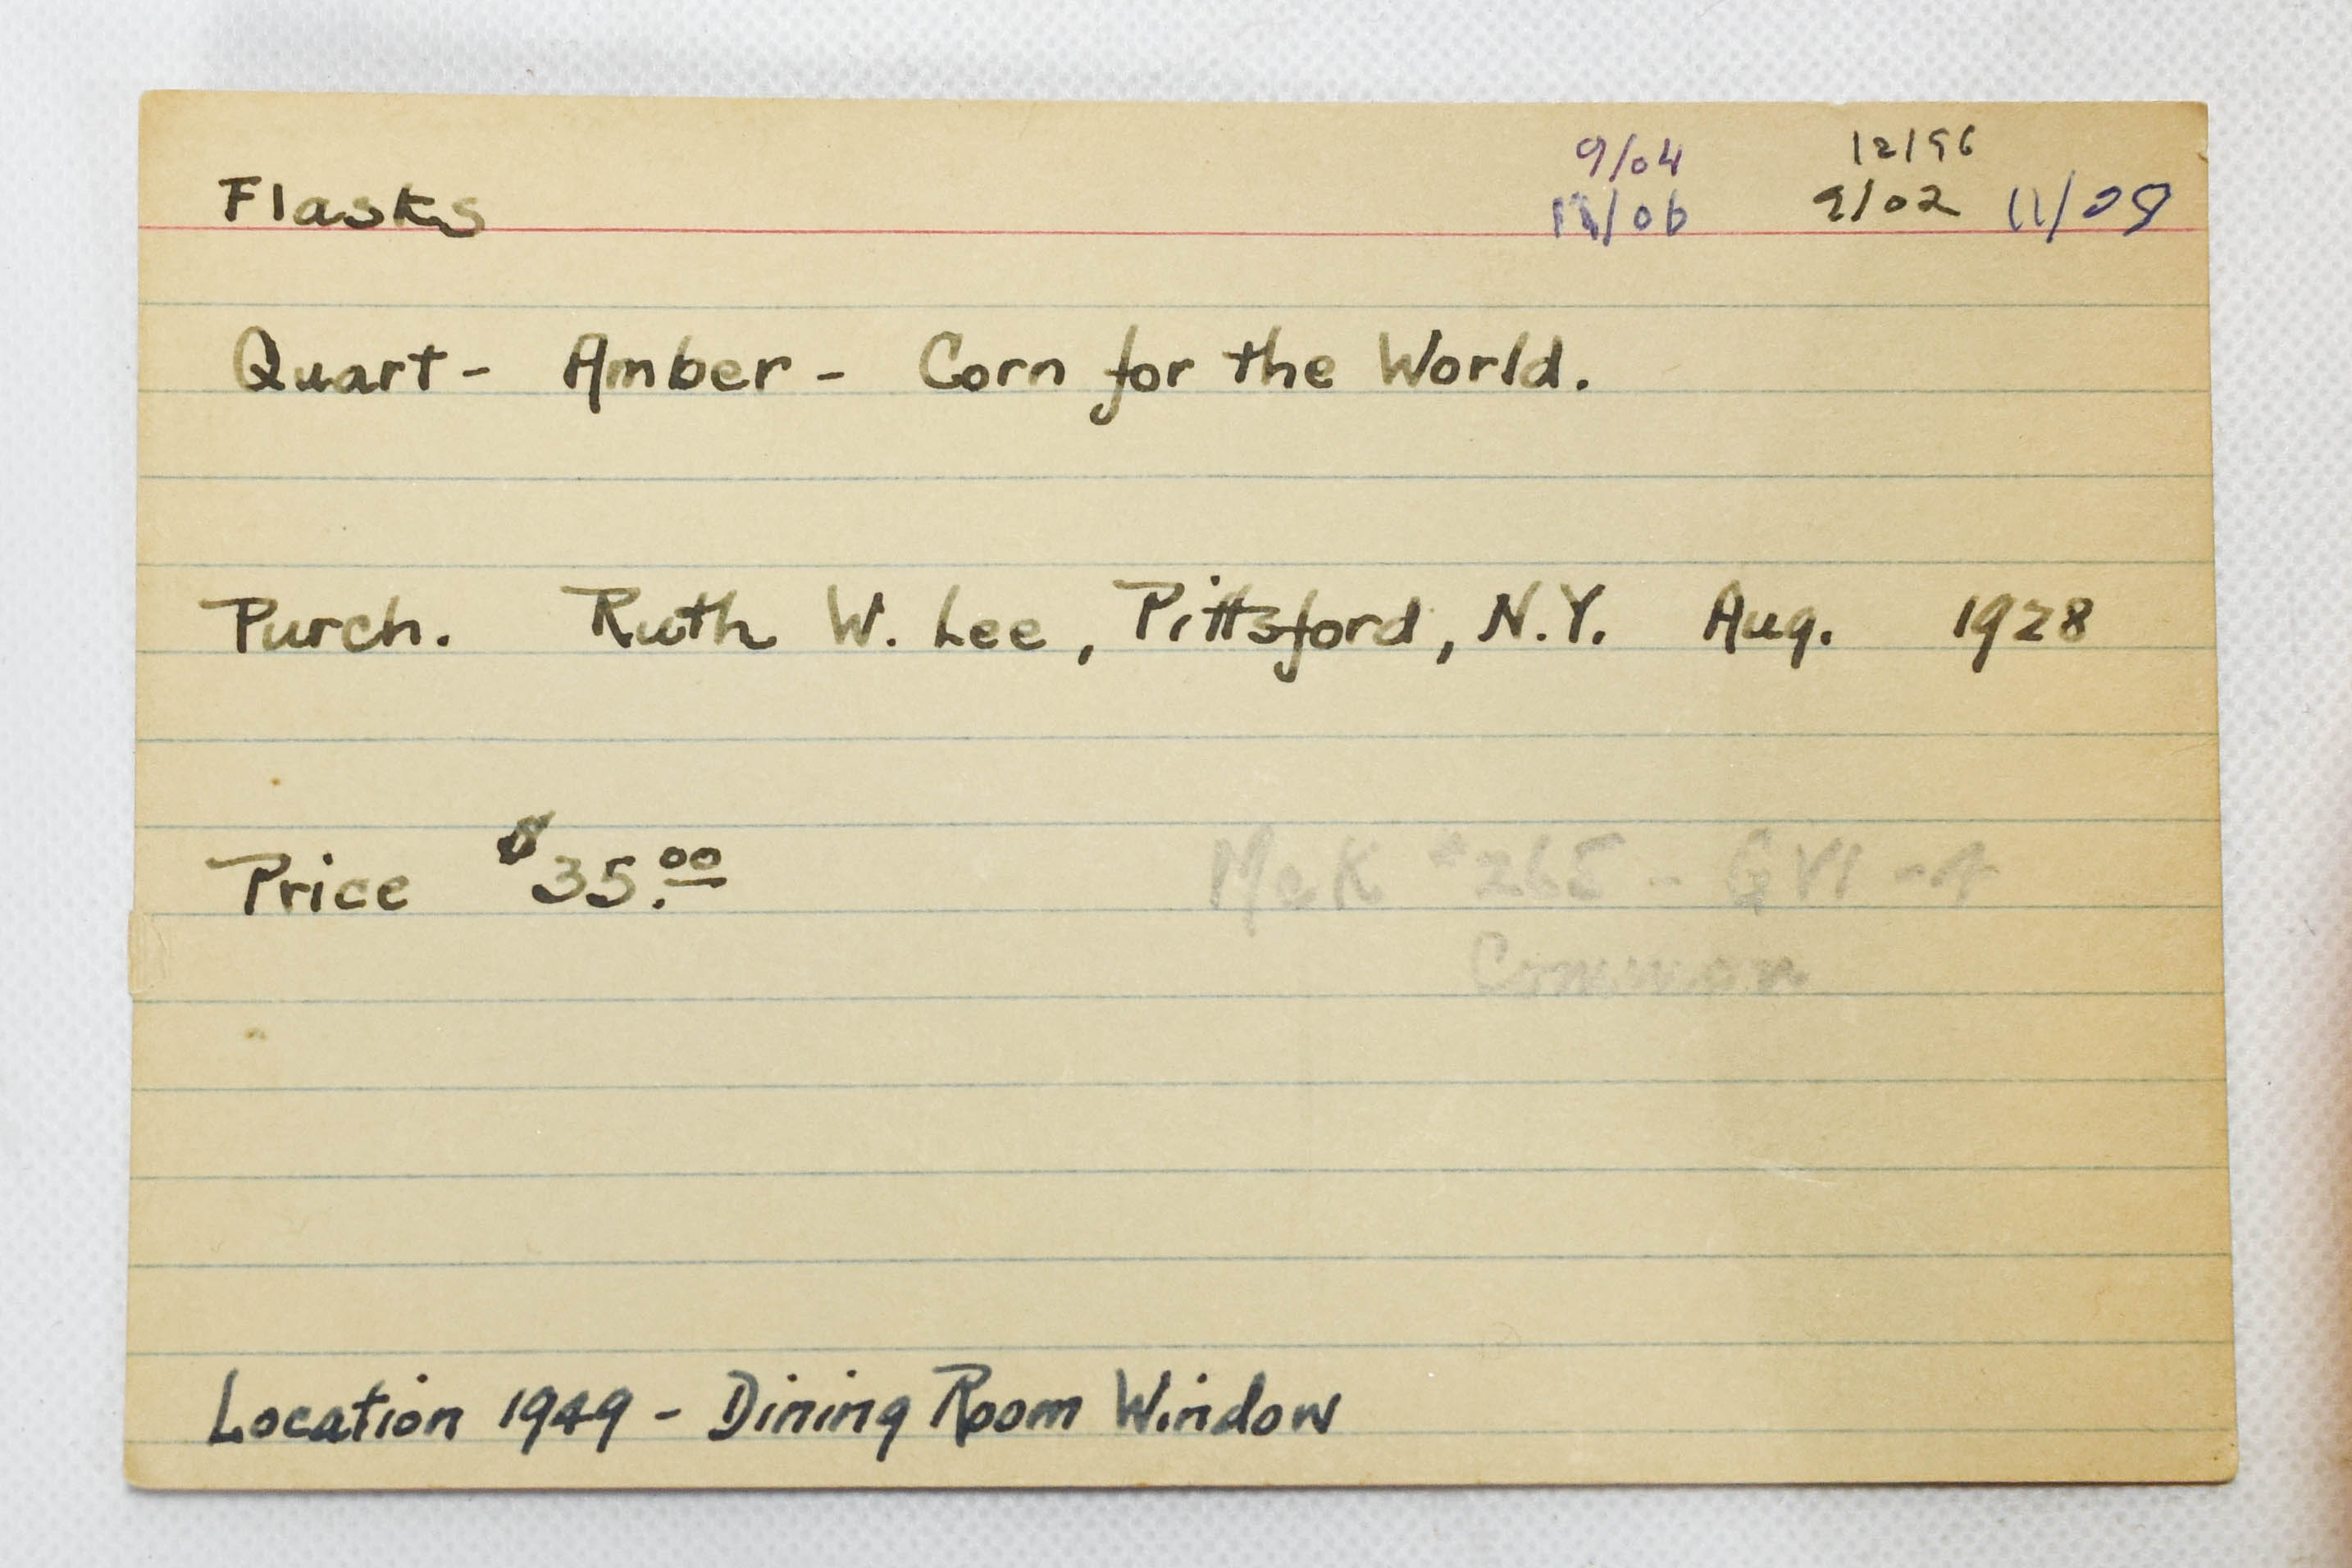 9/04 12/96
Flasks 11/06 9/02 11/08
Quart - Amber - Corn for the World.
Purch. Ruth W. Lee, Pittsford, N.Y. Aug. 1928
Price $35.00 McK #265 - GVI-4
Common
Location 1949 - Dining Room Window